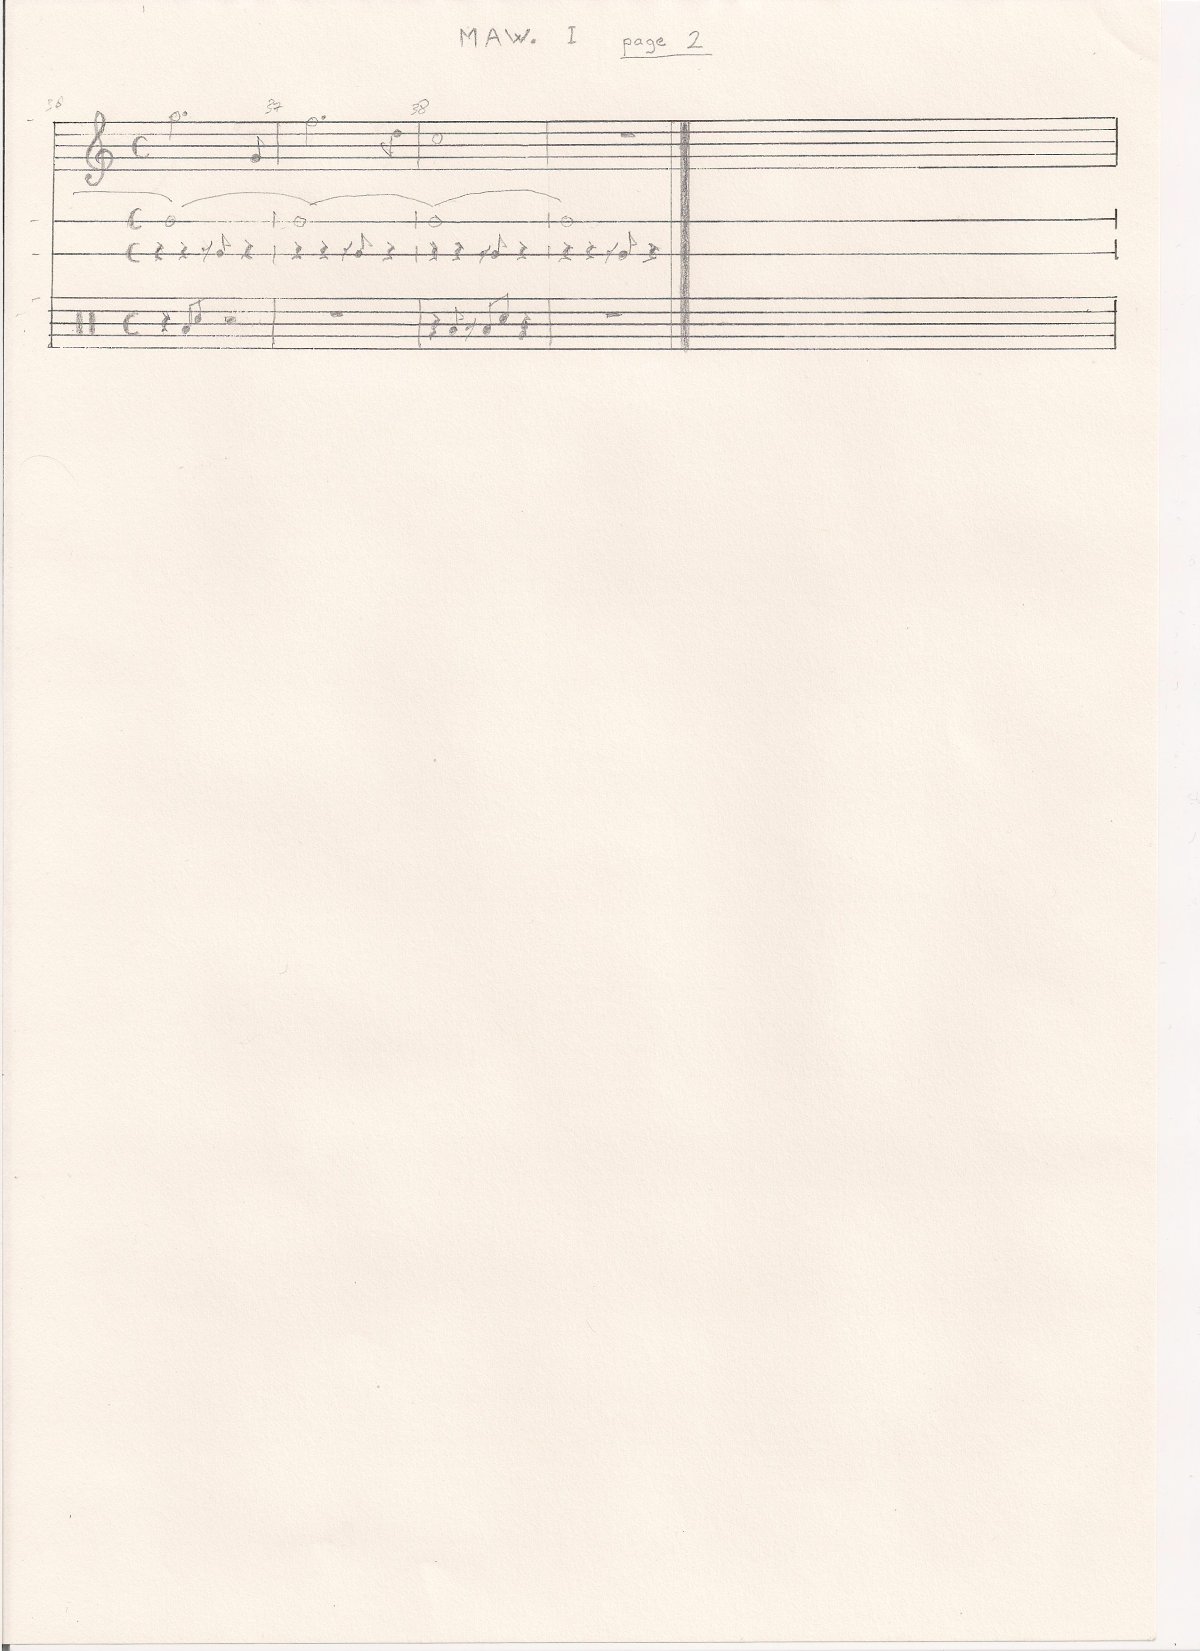 MAW. I page 2
36 37 38